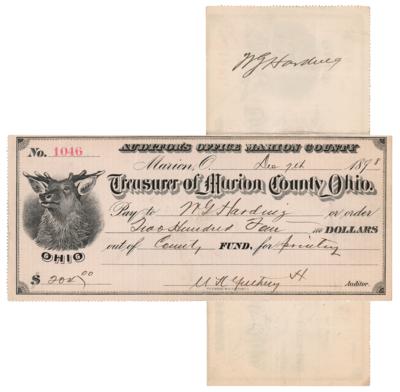 W G Harding
AUDITOR'S OFFICE MARION COUNTY
No. 1046
Marion, O. Dec 9th 1898
Treasurer of Marion County, Ohio.
Pay to W. G. Harding or order
Two Hundred Four 00 DOLLARS
out of County FUND, for printing
OHIO
$ 204 00
Auditor.